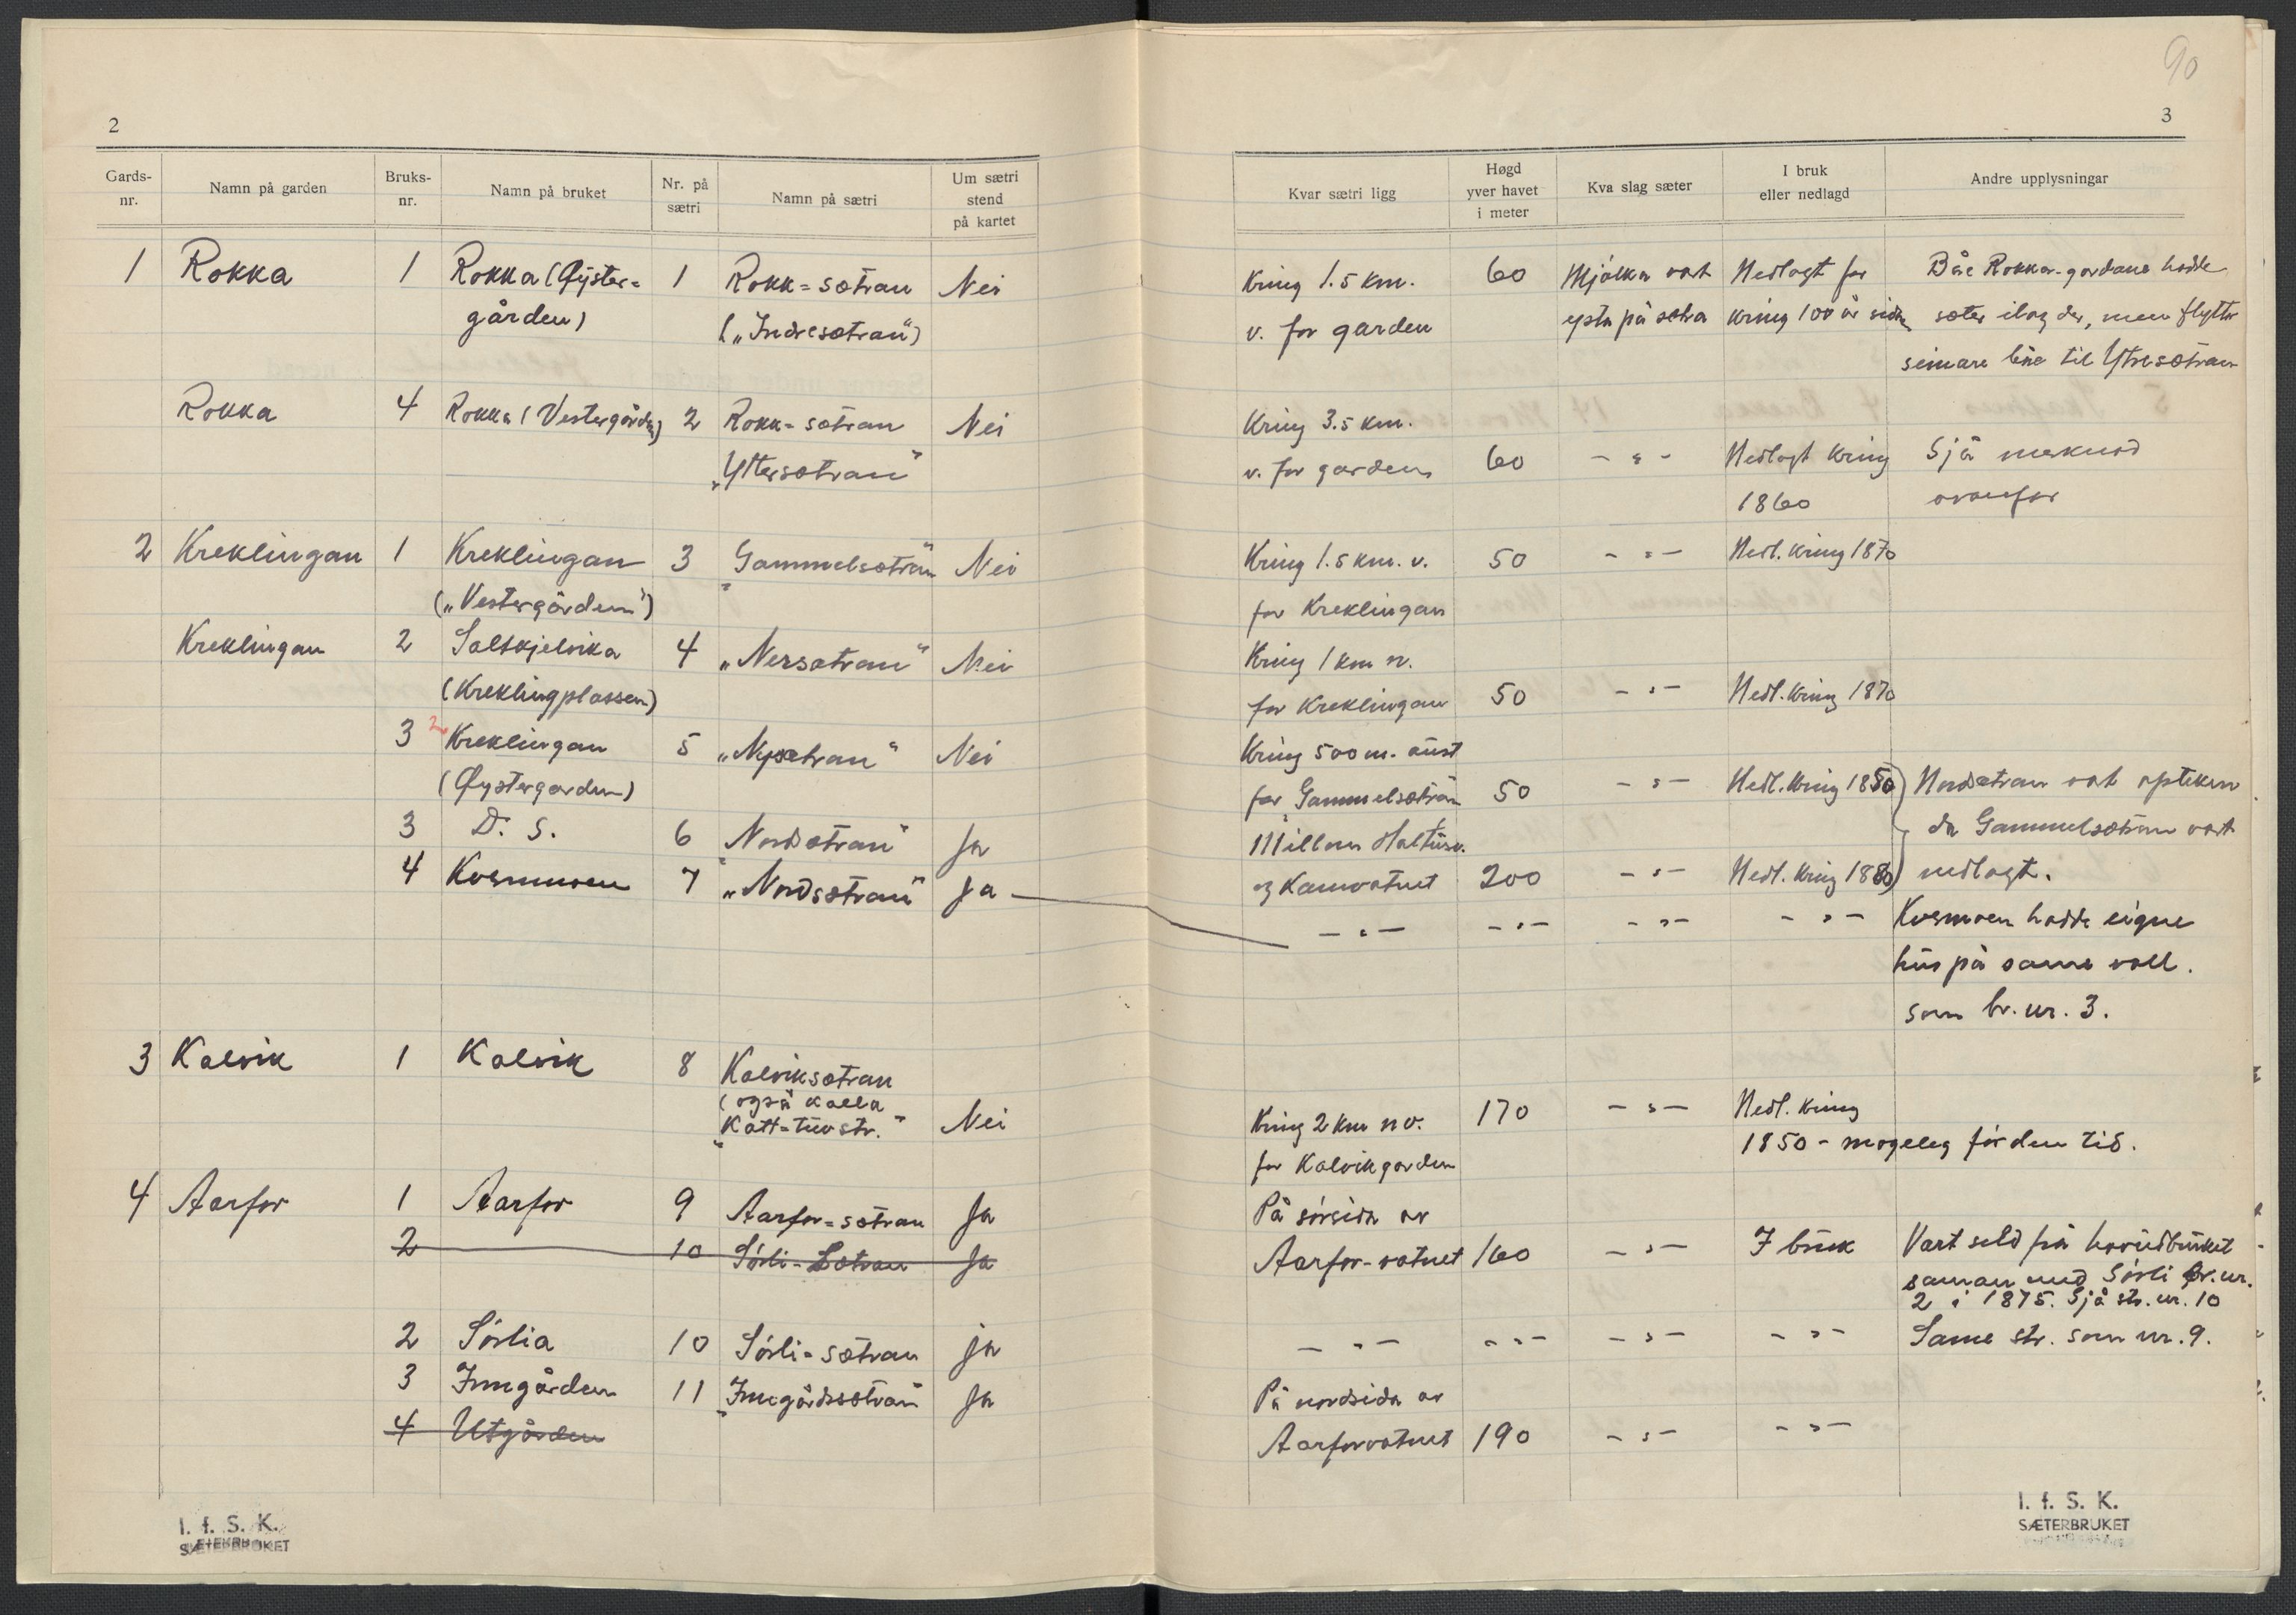 90
2
3
Gards-nr. Namn på garden Bruks-nr. Namn på bruket Nr. på sætri Namn på sætri Um sætri stend på kartet
Kvar sætri ligg Høgd yver havet i meter Kva slag sæter I bruk eller nedlagd Andre upplysningar
1 Rokka 1 Rokka (Øyster= 1 Rokk=sætran Nei Kring 1.5 km. 60 Mjølka vart Nedlagt for Båe Rokka-gardane hadde
gården) („Indresætran“) v. for garden ysta på sætra kring 100 år sidn sæter ilag der, men flytte
seinare båe til Ytresætran
Rokka 4 Rokka (Vestergården) 2 Rokk=sætran Nei Kring 3.5 km.
„Yttersætran“ v. for garden 60 -„- Nedlagt kring Sjå merknad
1860 ovanfor
2 Kreklingan 1 Kreklingan 3 „Gammelsætran“ Nei Kring 1.5 km. v. 50 -„- Nedl. kring 1870
(„Vestergården“) for Kreklingan
Kreklingan 2 Saltkjelvika 4 „Nersætran“ Nei Kring 1 km n.
(Kreklingplassen) for Kreklingan 50 -„- Nedl. kring 1870
3 2 Kreklingan 5 „Nysætran“ Nei Kring 500 m. aust
(Øystergarden) for „Gammelsætran 50 -„- Nedl. kring 1850) Nordsætran vart opteken
3 D. S. 6 „Nordsætran“ Ja Millom Haltuv. da Gammelsætran vart
4 Kvernmoen 7 „Nordsætran“ Ja og Kamvatnet 200 -„- Nedl. kring 1880) nedlagt.
-„- -„- -„- -„- Kvernmoen hadde eigne
hus på same voll.
som br. nr. 3.
3 Kalvik 1 Kalvik 8 Kalviksætran
(også kalla
„Katt=tuvstr.“ Nei Kring 2 km nv. 170 -„- Nedl. kring
for Kalvikgarden 1850 - mogeleg før den tid.
4 Aarfor 1 Aarfor 9 Aarfor=sætran Ja På sørsida av
2 10 Sørli-Sætran Ja Aarfor-vatnet 160 -„- I bruk Vart seld frå hovudbruket
saman med Sørli br. nr.
2 i 1875. Sjå str. nr. 10
2 Sørlia 10 Sørli=sætran ja -„- -„- -„- -„- Same str. som nr. 9.
3 Inngården 11 „Inngårdssætran“ Ja På nordsida av
4 Utgården Aarforvatnet 190 -„- -„-
I. f. S. K.
SÆTERBRUKET
I. f. S. K.
SÆTERBRUKET